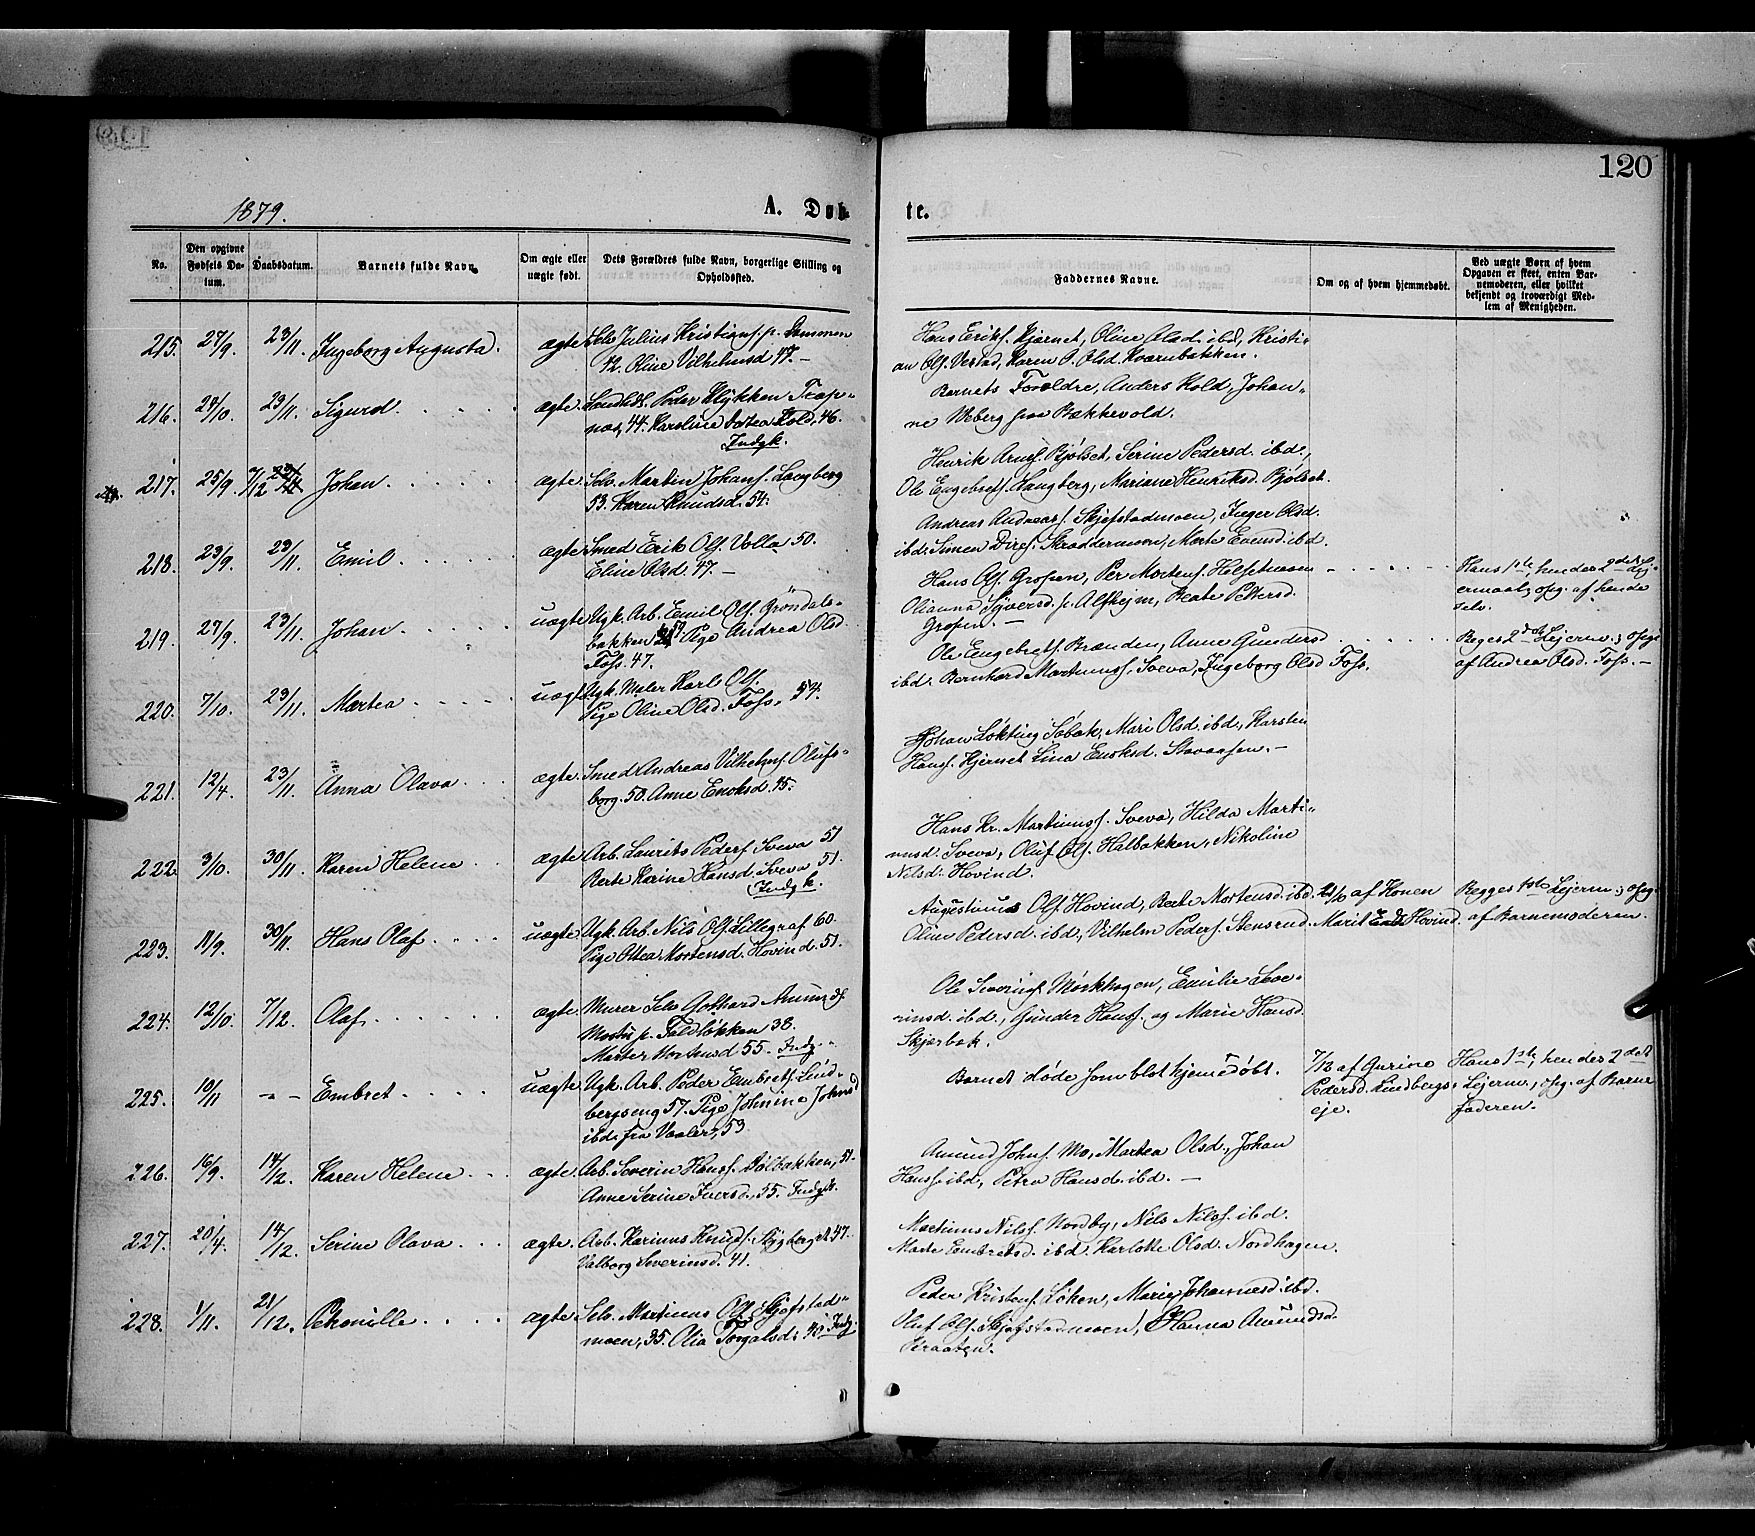 120
1879.
A. Døb-
te.
No.
Den opgivne
Fødsels Da-
tum.
Daabsdatum.
Barnets fulde Navn.
Om ægte eller
uægte født.
Dets Forældres fulde Navn, borgerlige Stilling og
Opholdssted.
Faddernes Navne.
Om og af hvem hjemmedøbt.
Ved uægte Børn af hvem
Opgaven er skeet, enten Bar-
nemoderen, eller hvilket
bekjendt og troværdigt Med-
lem af Menigheden.
215. 27/9. 23/11. Ingeborg Augusta. ægte Selv. Julius Kristians. p. Dammen
42. Oline Vilhelmsd. 47. —
Hans Eriks. Kjernet, Oline Olsd. ibd, Kristi-
an Ols. Verstad, Karen O. Olsd. Kvernbakken.
216. 24/10. 23/11. Sigurd. ægte. Landhdl. Peder Klykken Trap-
næs, 44. Karoline Dortea Kold, 46.
Indgk.
Barnets Forældre, Anders Kold, Johan-
ne Weberg paa Bækkevold.
217. 25/9. 7/12 Johan ægte Selv. Martin Johans. Langberg
53. Karen Knudsd. 54.
Henrik Arnes. Bjølset, Serine Pedersd. ibd.,
Ole Engebrets. Langberg, Mariane Henriksd. Bjølset.
218. 23/9. 23/11. Emil ægte Smed Erik Ols. Volla 50.
Eline Olsd. 47. —
Andreas Andreas. Skjefstadmoen, Inger Olsd.
ibd. Simen Dires. Skrøddermoen, Marte Evensd. ibd.
219. 27/9. 23/11. Johan. uægte Ugk. Arb. Emil Ols. Grøndals-
bakken 50. Pige Andrea Olsd.
Foss. 47.
Hans Ols. Gropen, Per Mortens. Helsetmoen
Olianna Syversd. p. Alfheim, Beate Pettersd.
Gropen. —
Hans 1ste, hendes 2det Lej-
ermaal; opg. af hende
selv.
220. 7/10. 23/11. Martea uægte Ugk. Maler Karl Ols.
Pige Oline Olsd. Foss, 54.
Ole Engebrets. Brænden, Anne Gundersd
ibd. Bernhard Martinuss. Sveva, Ingeborg Olsd Foss.
Beges 2det Lejerm.; opg.
af Andrea Olsd. Foss. —
221. 12/4. 23/11. Anna Olava ægte. Smed Andreas Vilhelms. Olufs-
borg. 50. Anne Enoksd. 45.
Johan Løkting Søbak, Mari Olsd. ibd., Karsten
Hans. Hjernet Lina Enoksd. Stavaasen. —
222. 3/10. 30/11. Karen Helene ægte Arb. Laurits Peders Sveva 51
Berte Karine Hansd. Sveva 51.
Indgk.
Hans Kr. Martinuss. Sveva, Hilda Marti-
nusd. Sveva, Oluf Ols. Halbakken, Nikoline
Nilsd. Hovind.
223. 11/9. 30/11. Hans Olaf uægte Ugk. Arb. Nils Ols. Lillegraf 60.
Pige Oltea Mortensd. Hovind. 51.
Augustinus Ols. Hovind, Beate Mortensd. ibd.
Oline Pedersd. ibd., Vilhelm Peders. Stensrud.
af Konen
Marit Hovind.
Begges 1ste Lejerm.; opg.
af Barnemoderen.
224. 12/10. 7/12. Olaf ægte. Murer Selv. Gothard Amunds
p. Faldløkken 38.
Marter Mortensd 55. Indg.
Ole Severins. Mørkhagen, Emilie Seve-
rinsd. ibd., Gunder Hans. og Marie Hansd.
Skjærbak.
225. 10/11 -"- Embret. uægte Ugk. Arb. Peder Embrets. Lind-
bergseng 57. Pige Johnine Johnsd
ibd. fra Vaaler, 53
Barnet døde som blot hjemedøbt.
7/12 af Gurine
Pedersd. Lindbergs-
eje.
Hans 1ste, hendes 2det
Lejerm., opg. af Barne
faderen.
226. 16/9. 14/12. Karen Helene ægte Arb. Severin Hans. Dølbakken, 51.
Anne Serine Iversd., 55. Indgk.
Amund Johns. Mo, Martea Olsd., Johan
Hans. ibd, Petra Hansd. ibd. —
227. 20/4. 14/12. Serine Olava ægte. Arb. Karinus Knuds. Nygberget 47.
Valborg Severinsd. 41.
Martinus Nils. Nordby, Nils Nils. ibd.
Marte Embretsd. ibd. Karlotte Olsd. Nordhagen.
228. 1/11. 21/12. Petronille ægte Selv. Martinus Ols. Skjefstad-
moen, 35. Olia Torgalsd. 40. Indg.
Peder Kristens. Løken, Marie Johannesd. ibd.
Oluf Ols. Skjefstadmoen, Hanna Amundsd.
Braaten.